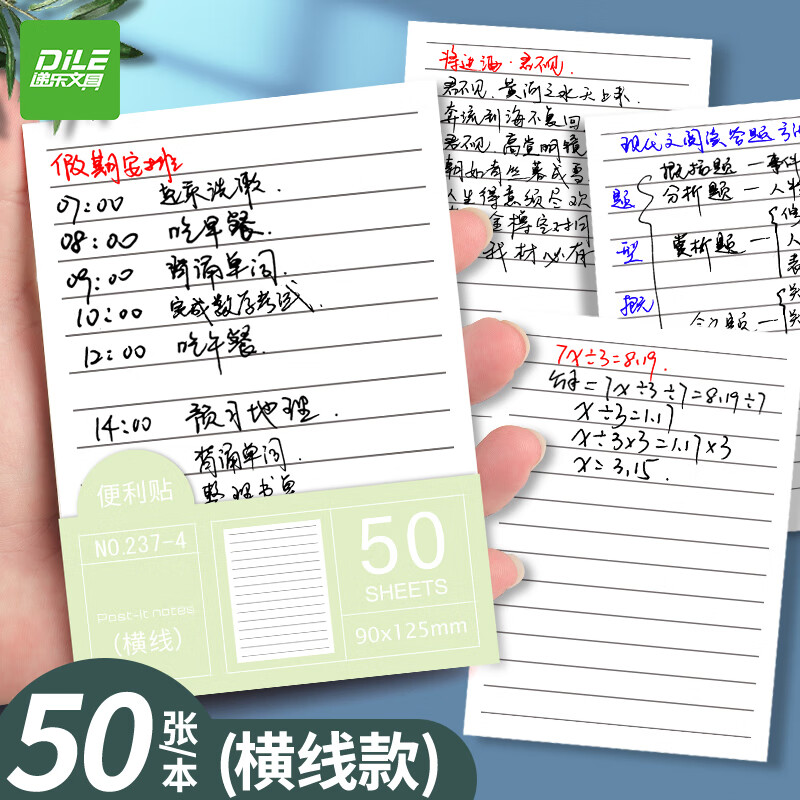 DiLE
递乐文具
假期安排
07:00 起床洗漱.
08:00 吃早餐.
09:00 背诵单词.
10:00 完成数学考试.
12:00 吃午餐.
14:00 预习地理.
背诵单词.
整理书桌
便利贴
NO.237-4
Post-it notes
(横线)
50
SHEETS
90x125mm
将进酒·君不见.
君不见,黄河之水天上来.
奔流到海不复回
君不见,高堂明镜
朝如青丝暮成雪
人生得意须尽欢
金樽空对月
我材必有
现代文阅读答题
题
型
概括题一事件
分析题一人物
赏析题一
7x÷3=8.19.
解=7x÷3÷7=8.19÷7
x÷3=1.17
x÷3×3=1.17×3
x=3.15.
50张/本
(横线款)